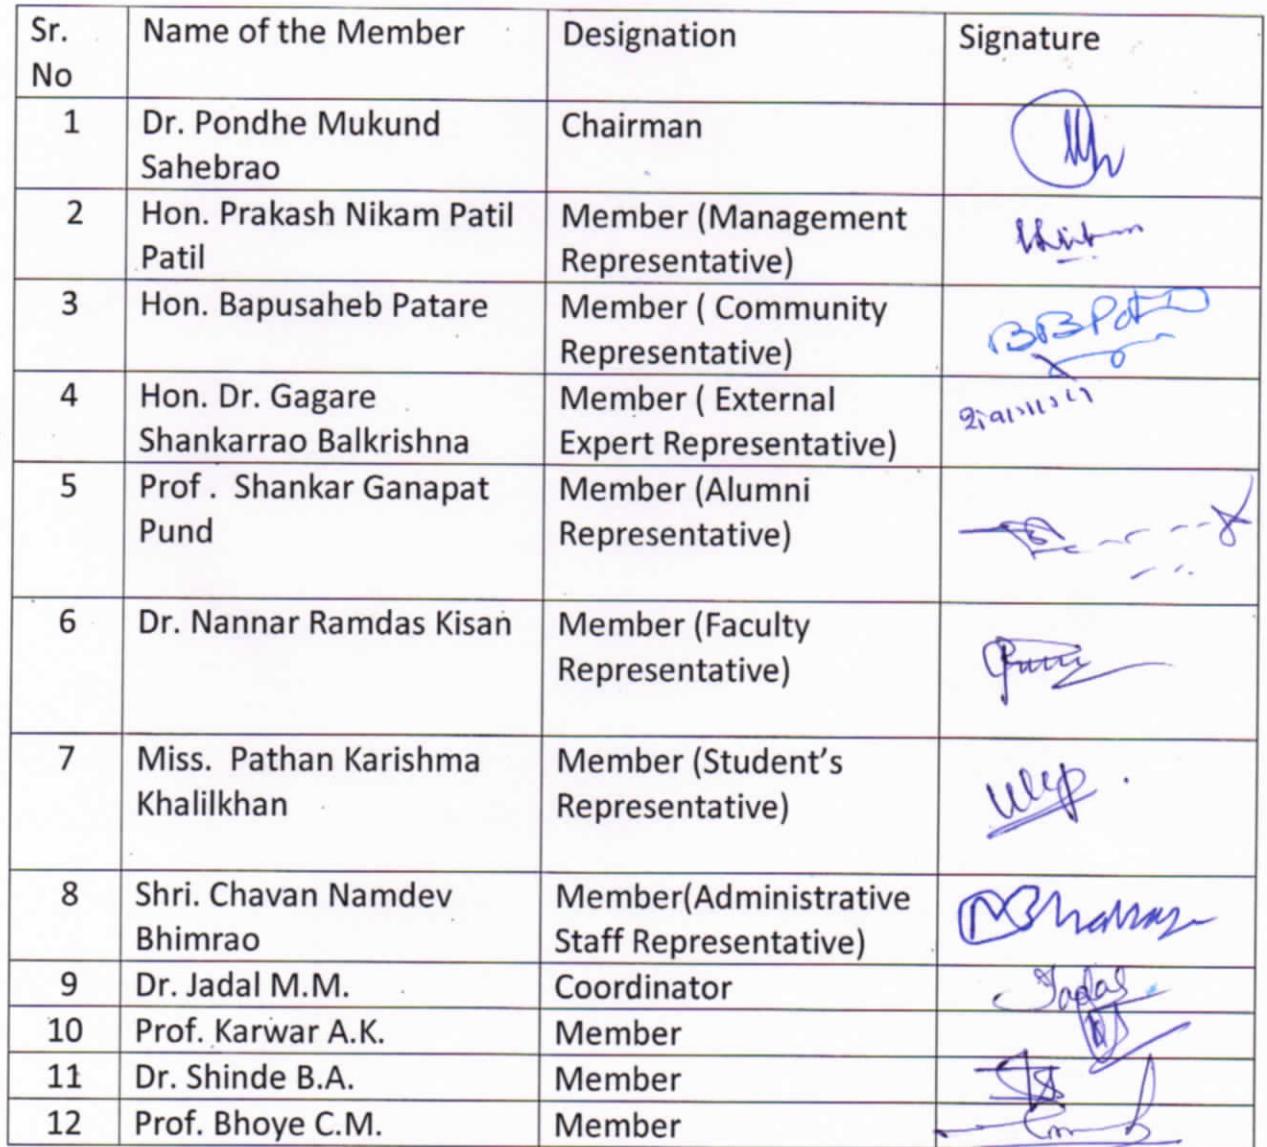 Sr. No | Name of the Member | Designation | Signature
1 | Dr. Pondhe Mukund Sahebrao | Chairman
2 | Hon. Prakash Nikam Patil Patil | Member (Management Representative)
3 | Hon. Bapusaheb Patare | Member ( Community Representative) | BBPat
4 | Hon. Dr. Gagare Shankarrao Balkrishna | Member ( External Expert Representative)
5 | Prof . Shankar Ganapat Pund | Member (Alumni Representative)
6 | Dr. Nannar Ramdas Kisan | Member (Faculty Representative)
7 | Miss. Pathan Karishma Khalilkhan | Member (Student’s Representative)
8 | Shri. Chavan Namdev Bhimrao | Member(Administrative Staff Representative)
9 | Dr. Jadal M.M. | Coordinator | Jadal
10 | Prof. Karwar A.K. | Member
11 | Dr. Shinde B.A. | Member
12 | Prof. Bhoye C.M. | Member